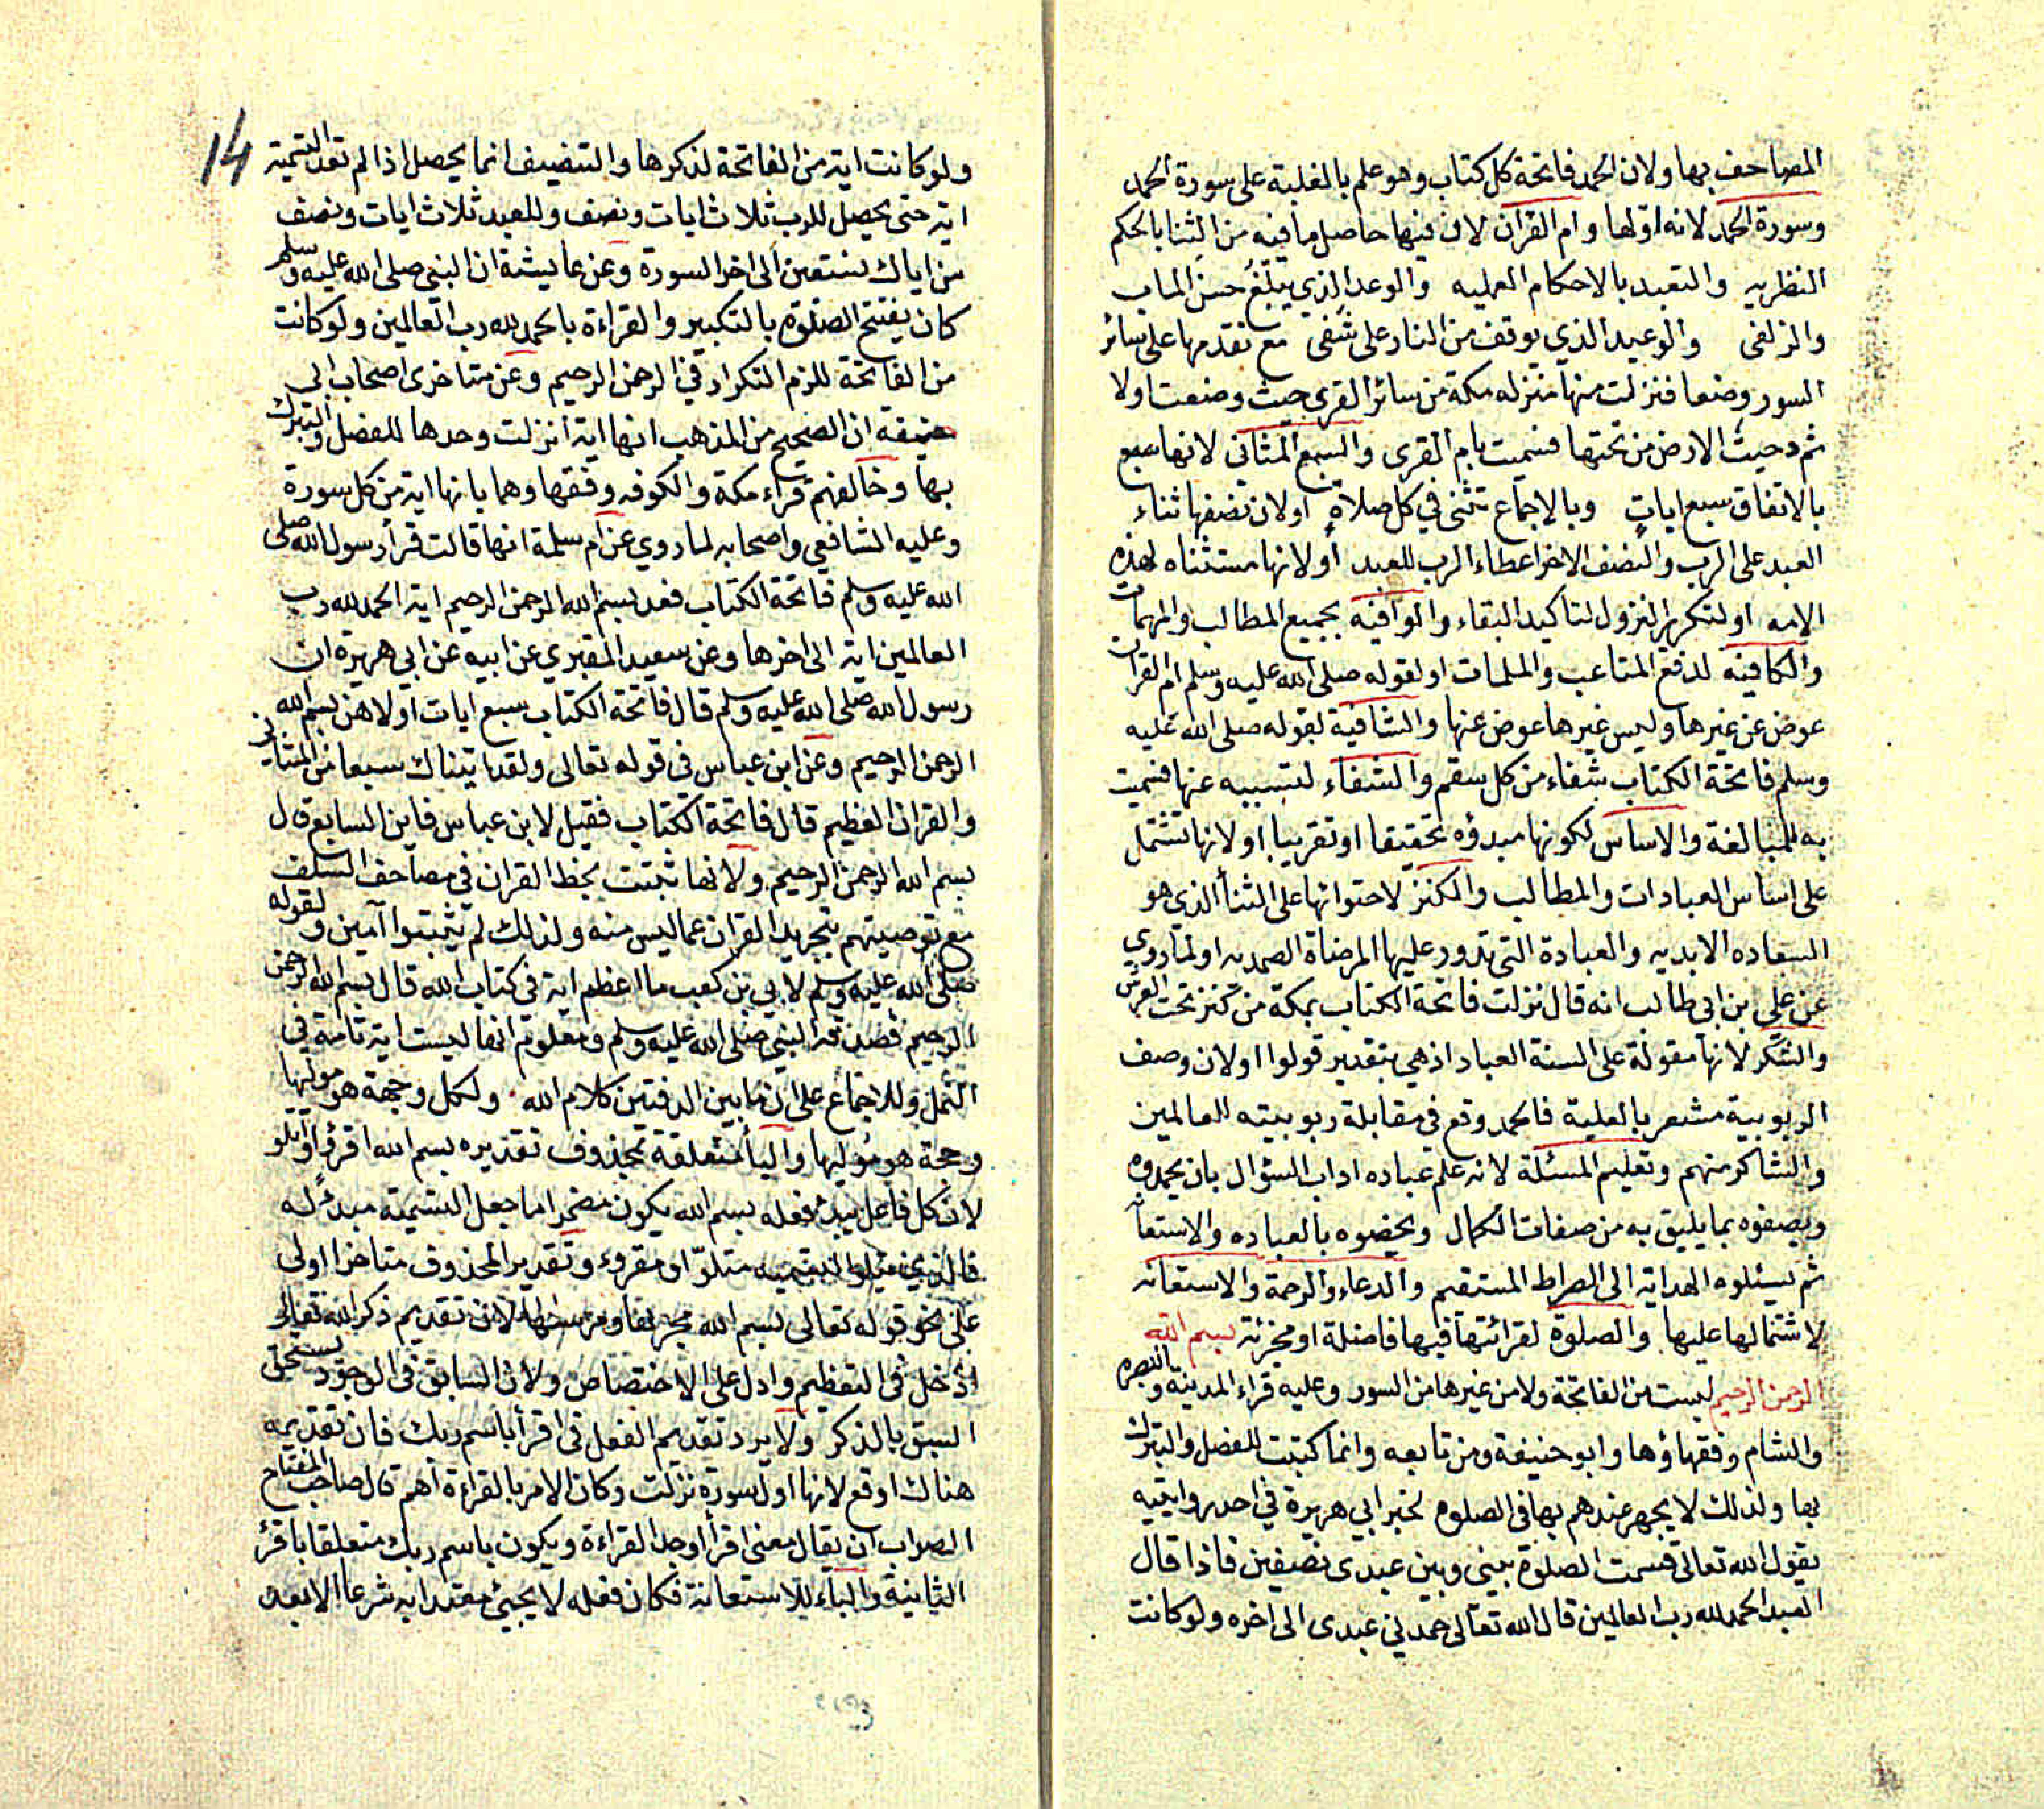 المصاحف بها ولان الحمد فاتحة كل كتاب وهو علم بالغلبة على سورة الحمد
وسورة الحمد لانه اولها وام القران لان فيها حاصل ما فيه من الثنا بالحكم
النظريه والتعبد بالاحكام العمليه والوعد الذي يبلغ حسن الماب
والزلفى والوعيد الذي يوقف من النار على شفى مع تقدمها على سائر
السور وضعا فنزلت منها منزله مكة من سائر القرى حيث وضعت اولا
ثم دحيت الارض من تحتها فسميت بام القرى والسبع المثاني لانها سبع
بالاتفاق سبع ايات وبالاجماع تثنى في كل صلاة او لان نصفها ثناء
العبد على الرب والنصف الاخر اعطاء الرب للعبد او لانها مستثناه لهذه
الامه او لتكرير النزول لتاكيد البقاء والوافيه بجميع المطالب والمهمات
والكافيه لدفع المتاعب والملمات او لقوله صلى الله عليه وسلم ام القران
عوض عن غيرها وليس غيرها عوض عنها والشافية لقوله صلى الله عليه
وسلم فاتحة الكتاب شفاء من كل سقم والشفاء لتسببه عنها فسميت
به للمبالغة والاساس لكونها مبدؤه تحقيقا او تقريبا او لانها تشتمل
على اساس العبادات والمطالب والكنز لاحتوائها على الثنأ الذي هو
السعاده الابديه والعبادة التي تدور عليها المرضاة الصمديه او لما روي
عن علي بن ابي طالب انه قال نزلت فاتحة الكتاب بمكة من كنز تحت العرش
والشكر لانها مقولة على السنة العباد اذ هي بتقدير قولوا او لان وصف
الربوبية مشعر بالعلية فالحمد وقع في مقابلة ربوبيته العالمين
والشاكر منهم وتعليم المسئلة لانه علم عباده اداب السؤال بان يحمدوه
ويصفوه بما يليق به من صفات الكمال ويخصوه بالعباده والاستعانه
ثم يسئلوه الهدايه الى الصراط المستقيم والدعاء والرحمة والاستعانه
لاشتمالها عليها والصلوة لقرائتها فيها فاضلة او مجزئة بسم الله
الرحمن الرحيم ليست من الفاتحة ولا من غيرها من السور وعليه قراء المدينه والبصره
والشام وفقهاؤها وابو حنيفة ومن تابعه وانما كتبت للفصل والتبرك
بها ولذلك لا يجهر عندهم بها في الصلوه لخبر ابي هريرة في احد روايتيه
يقول الله تعالى قسمت الصلوة بيني وبين عبدي نصيفين فاذا قال
العبد الحمد لله رب العالمين قال الله تعالى حمدني عبدي الى اخره ولو كانت
١٤
ولو كانت اية من الفاتحة لذكرها والتنصيف انما يحصل اذا لم تعد التسمية
اية حتى يحصل للرب ثلاث ايات ونصف وللعبد ثلاث ايات ونصف
من اياك نستعين الى اخر السورة وعن عايشة ان النبي صلى الله عليه وسلم
كان يفتتح الصلوة بالتكبير والقراءة بالحمد لله رب العالمين ولو كانت
من الفاتحة للزم التكرار في الرحمن الرحيم وعن متاخرى اصحاب ابي
حنيفة ان الصحيح من المذهب انها اية انزلت وحدها للفصل والتبرك
بها وخالفهم قراء مكة والكوفه وفقهاوهما بانها اية من كل سورة
وعليه الشافعي واصحابه لما روي عن ام سلمة انها قالت قرأ رسول الله صلى
الله عليه وسلم فاتحة الكتاب فعد بسم الله الرحمن الرحيم اية الحمد لله رب
العالمين اية الى اخرها وعن سعيد المقبري عن ابيه عن ابي هريرة ان
رسول الله صلى الله عليه وسلم قال فاتحة الكتاب سبع ايات اولاهن بسم الله
الرحمن الرحيم وعن ابن عباس في قوله تعالى ولقد اتيناك سبعا من المثاني
والقران العظيم قال فاتحة الكتاب فقيل لابن عباس فاين السابع قال
بسم الله الرحمن الرحيم ولانها ثبتت بخط القران في مصاحف السلف
مع توصيتهم بتجريد القران عما ليس منه ولذلك لم يثبتوا آمين ولقوله
صلى الله عليه وسلم لابي بن كعب ما اعظم اية في كتاب الله قال بسم الله الرحمن
الرحيم فصدقه النبي صلى الله عليه وسلم ومعلوم انها ليست اية تامة في
النمل وللاجماع على ان ما بين الدفتين كلام الله ولكل وجهة هو موليها
وجهة هو موليها والبأ متعلقة بمحذوف تقديره بسم الله اقرؤ او اتلو
لان كل فاعل يبدئ فعله بسم الله يكون مضمرا ما جعل التسمية مبدئ له
فالذي يتلو التسميه متلوّ او مقروء وتقدير المحذوف متاخرا اولى
على نحو قوله تعالى بسم الله مجريها ومرسيها لان تقديم ذكر الله تعالى
ادخل في التعظيم وادل على الاختصاص ولان السابق في الوجود يستحق
السبق بالذكر ولا يرد تقديم الفعل في اقرأ باسم ربك فان تقديمه
هناك اوقع لانها اول سورة نزلت وكان الامر بالقراءة اهم قال صاحب المفتاح
الصواب ان يقال معنى اقرأ اوجد القراءة ويكون باسم ربك متعلقا باقرئ
الثانية والباء للاستعانة فكان فعله لا يجيئ معتدا به شرعا الا بعد